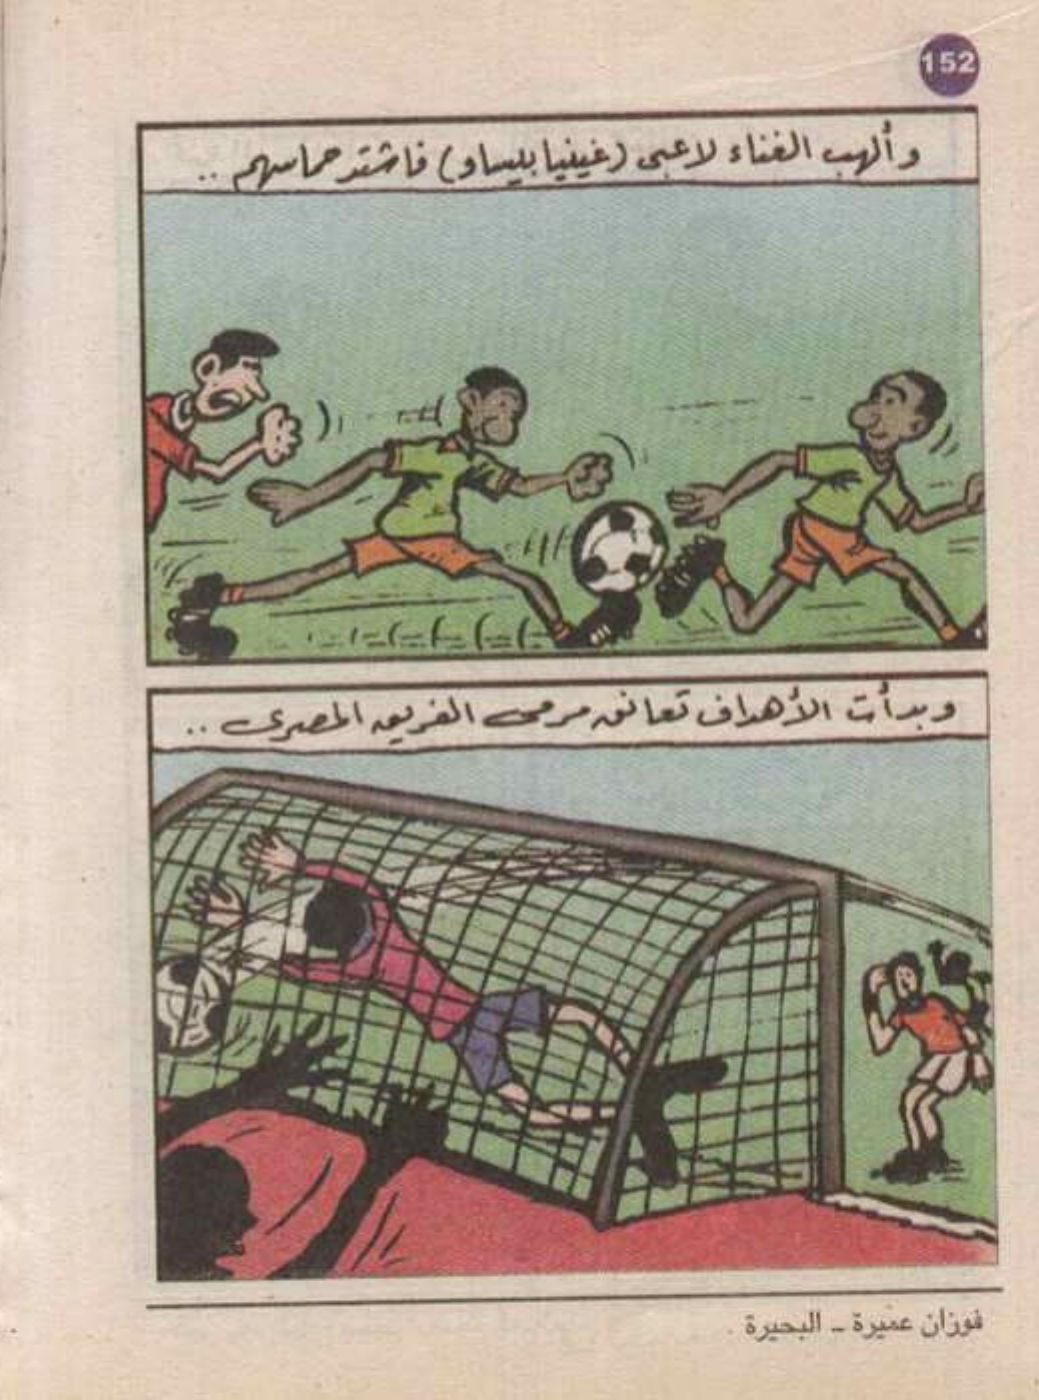 152
وألهب الغناء لاعبى (غينيا بيساو) فاشتد حماسهم ..
وبدأت الأهداف تعانق مرمى الفريق المصرى ..
فوزان عميرة ـ البحيرة .